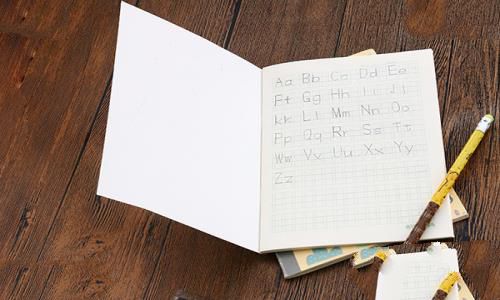 Aa Bb Cc Dd Ee
Ff Gg Hh Ii Jj
Kk Ll Mm Nn Oo
Pp Qq Rr Ss Tt
Ww Vv Uu Xx Yy
Zz